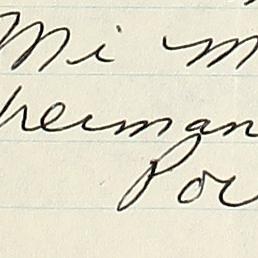 Mi m
herman
Por